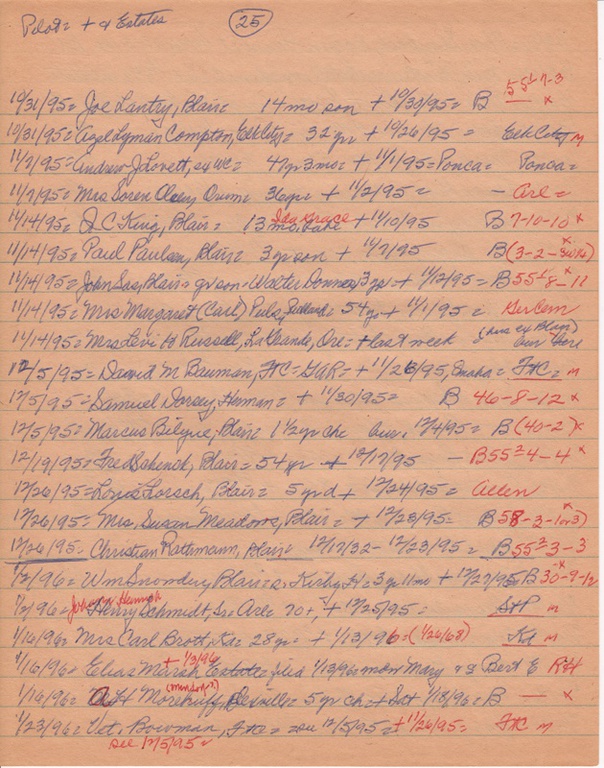 Pilot = + & Estates (25)
10/31/95 = Joe Lantry, Blair = 14 mo son + 10/30/95 = B 55½-7-3 — x
10/31/95 = Lyman Compton, Elk City = 32 yr + 10/26/95 = Elk City m
11/7/95 = Andrew J Lovett, ex WC = 47 yr 3 mo = + 11/1/95 = Ponca = Ponca =
11/7/95 = Mrs Soren Olsen, Orum = 36 yr = + 11/2/95 = — Arl =
11/14/95 = J C King, Blair = 13 mo. babe Ida Grace + 11/10/95 B 7-10-10 x
11/14/95 = Paul Paulsen, Blair = 3 yr son + 11/7/95 B (3-2- x
11/14/95 = John Sas, Blair = gr son = Walter 3 yr = + 11/12/95 = B 55½-8-11 x
11/14/95 = Mrs Margaret (Carl) 54 yr + 11/1/95 = Ger Cem
11/14/95 = Mrs Levi H Russell, LaGrande, Ore = + last week = (bur ex Blair) bur here
12/5/95 = David M Bauman, FtC = GAR = + 11/26/95, Omaha = FtC = m
12/5/95 = Samuel Dorsey, Herman = + 11/30/95 = B 46-8-12 x
12/5/95 = Marcus Bilyue, Blair = 1 1/2 yr chc bur. 12/4/95 = B (40-2) x
12/19/95 = Fred Blair = 54 yr + 12/17/95 — B 55²4-4 x
12/26/95 = Louis Lorsch, Blair = 5 yr d + 12/24/95 = Allen
12/26/95 = Mrs. Susan Meadows, Blair = + 12/23/95 = B 58-2-1 or 3) x
12/26/95 - Christian Rathmann, Blair = 12/17/32 - 12/23/95 = B 55²3-3
1/2/96 = Wm Snowdery Blair = s. Kirby H = 3 yr 11 mo + 12/27/95 B 30-9-12 x
1/2/96 = Johann Hannah Henry Schmidt, Sr = Arl = 70+, + 12/25/95 = StP m
1/16/96 = Mrs Carl Brott, Kd = 28 yr = + 1/13/96 = (1/26/68) Kd m
1/16/96 = Elias Marsh + 1/3/96 Estate filed 1/13/96 = Mary & s Bert E R#H
1/16/96 = A H Morehuff, 5 yr ch = + Sat 1/18/96 = B — x
1/23/96 = Vet. Bowman, FtC = see 12/5/95 = + 11/26/95 = FtC m
see 12/5/95 =